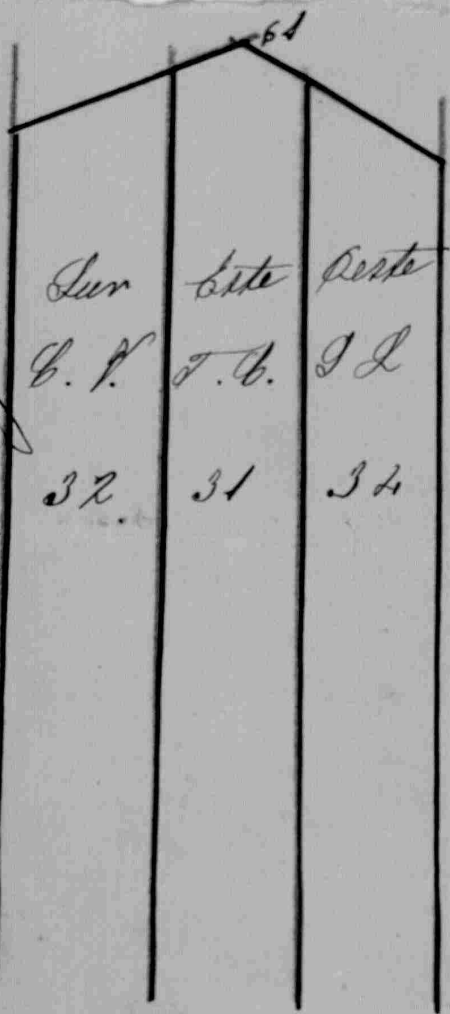 61
Sur Este Oeste
C. V. T. C. I L
32 31 34